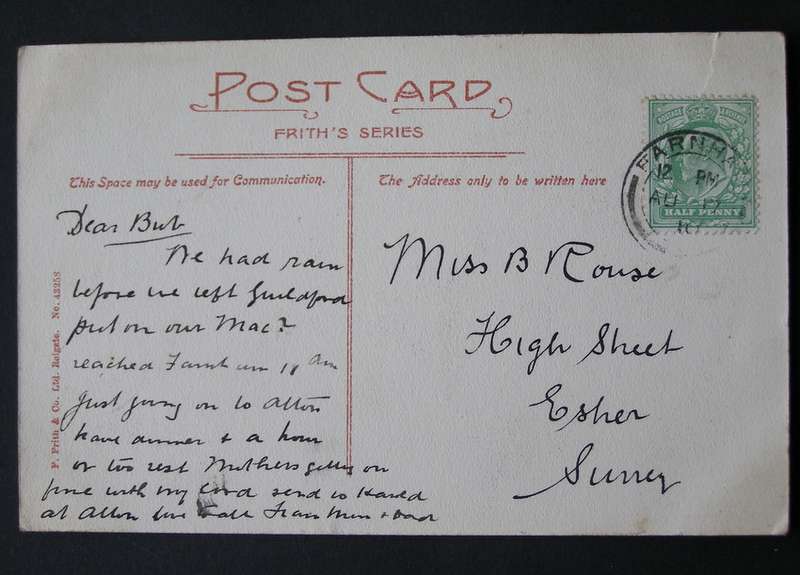 POST CARD
FRITH'S SERIES
This Space may be used for Communication.
The Address only to be written here
POSTAGE REVENUE
HALF PENNY
FARNHA
12 PM
AU
Dear Bub
We had rain
before we left Guildford
put on our Mac?
reached Farnham 11 am
Just going on to Alton
have dinner & a hour
or too rest Mothers getting on
fine with my send to
at Alton love & Dad
Miss B Rouse
High Street
Esher
Surrey
F. Frith & Co. Ltd. Reigate. No. 43258